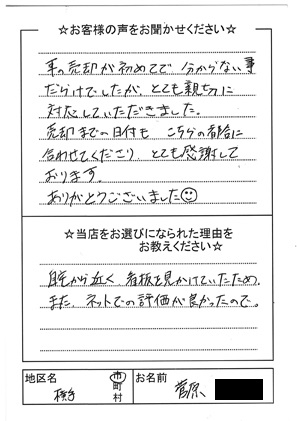 ☆お客様の声をお聞かせください☆
車の売却が初めてで分からない事
だらけでしたが、とても親切に
対応していただきました。
売却までの日付も こちらの都合に
合わせてくださり とても感謝して
おります。
ありがとうございました
☆当店をお選びになられた理由を
お教えください☆
自宅から近く、看板を見かけていたため。
また、ネットでの評価が良かったので。
地区名
横手
市
町
村
お名前
菅原